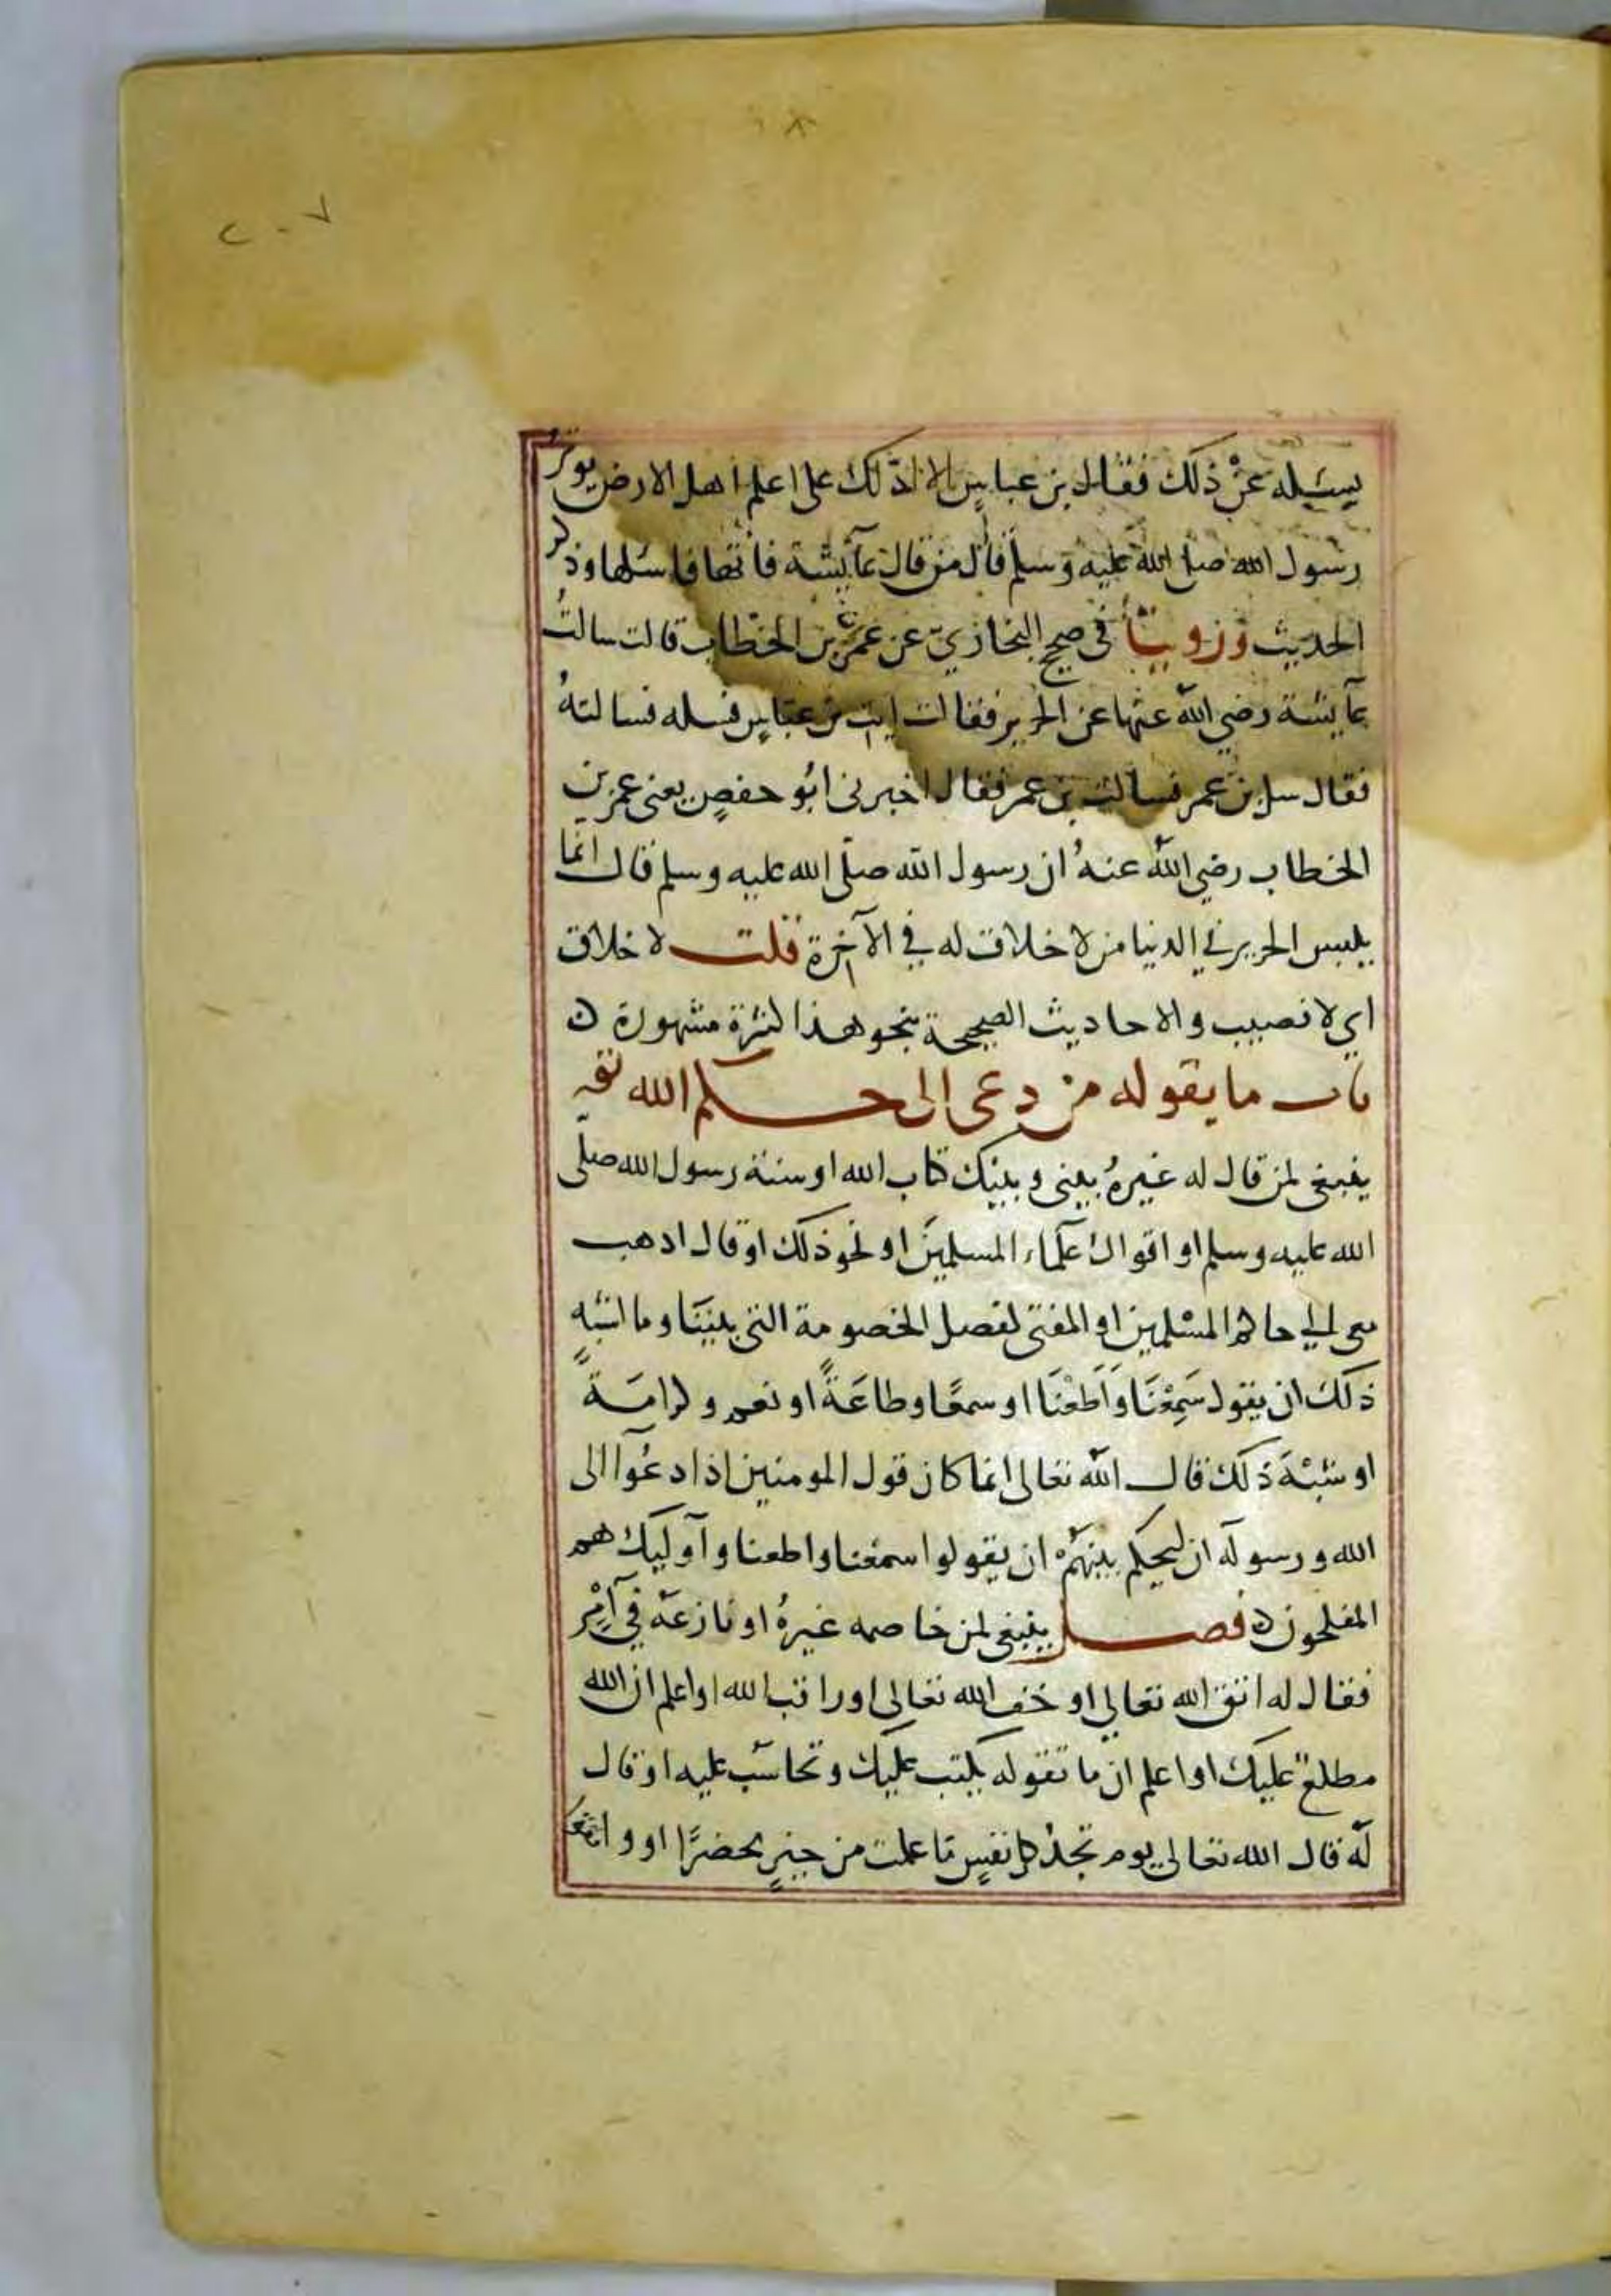 ٢٠٧
يسئله عن ذلك فقال بن عباس الا ادلك على اعلم اهل الارض بوتر
رسول الله صلى الله عليه وسلم قال من قال عآيشة فأتها فاسئلها وذكر
الحديث وروينا في صحيح البخاري عن عمر بن الخطاب قالت سالتُ
عآيشة رضي الله عنها عن الحرير فقالت ايت بن عباسٍ فسله فسالتهُ
فقال سل بن عمر فسالت بن عمر فقال اخبرنى ابُو حفصٍ يعنى عمر بن
الخطاب رضي الله عنهُ ان رسول الله صلّى الله عليه وسلم قال انما
يلبس الحرير في الدنيا من لا خلاق له في الآخرة قلت لا خلاق
اي لا نصيب والاحاديث الصحيحة بنحو هذا كثرة مشهورة ن
باب ما يقوله من دعى الى حكم الله تع
ينبغى لمن قال له غيرهُ بينى وبينك كتاب الله او سنة رسول الله صلّى
الله عليه وسلم او اقوال علماء المسلمين او نحو ذلك او قال اذهب
معى الي حاكم المسْلمين او المفتى لفصل الخصومة التى بيننا وما اشبه
ذلك ان يقول سَمِعْنَا وَاَطَعْنَا او سمعًا وطاعَةً او نعم وكرامَةً
او شبْهَ ذلك قال الله تعالى انما كان قول المومنين اذا دعُوآ الى
الله ورسوله ان ليحكم بينهمْ ان يقولوا سمعنا واطعنا وآوليك هم
المفلحون ن فصل ينبغى لمن خاصمه غيرهُ او نازعه في آمْرٍ
فقال له اتق الله تعالي او خف الله تعالى او راقب الله او اعلم ان الله
مطلع عليك او اعلم ان ما تقوله يكتب عليك وتحاسب عليه او قال
له قال الله تعالى يوم تجدُ كل نفسٍ ما عملت من خيرٍ محضرًا او واتقو